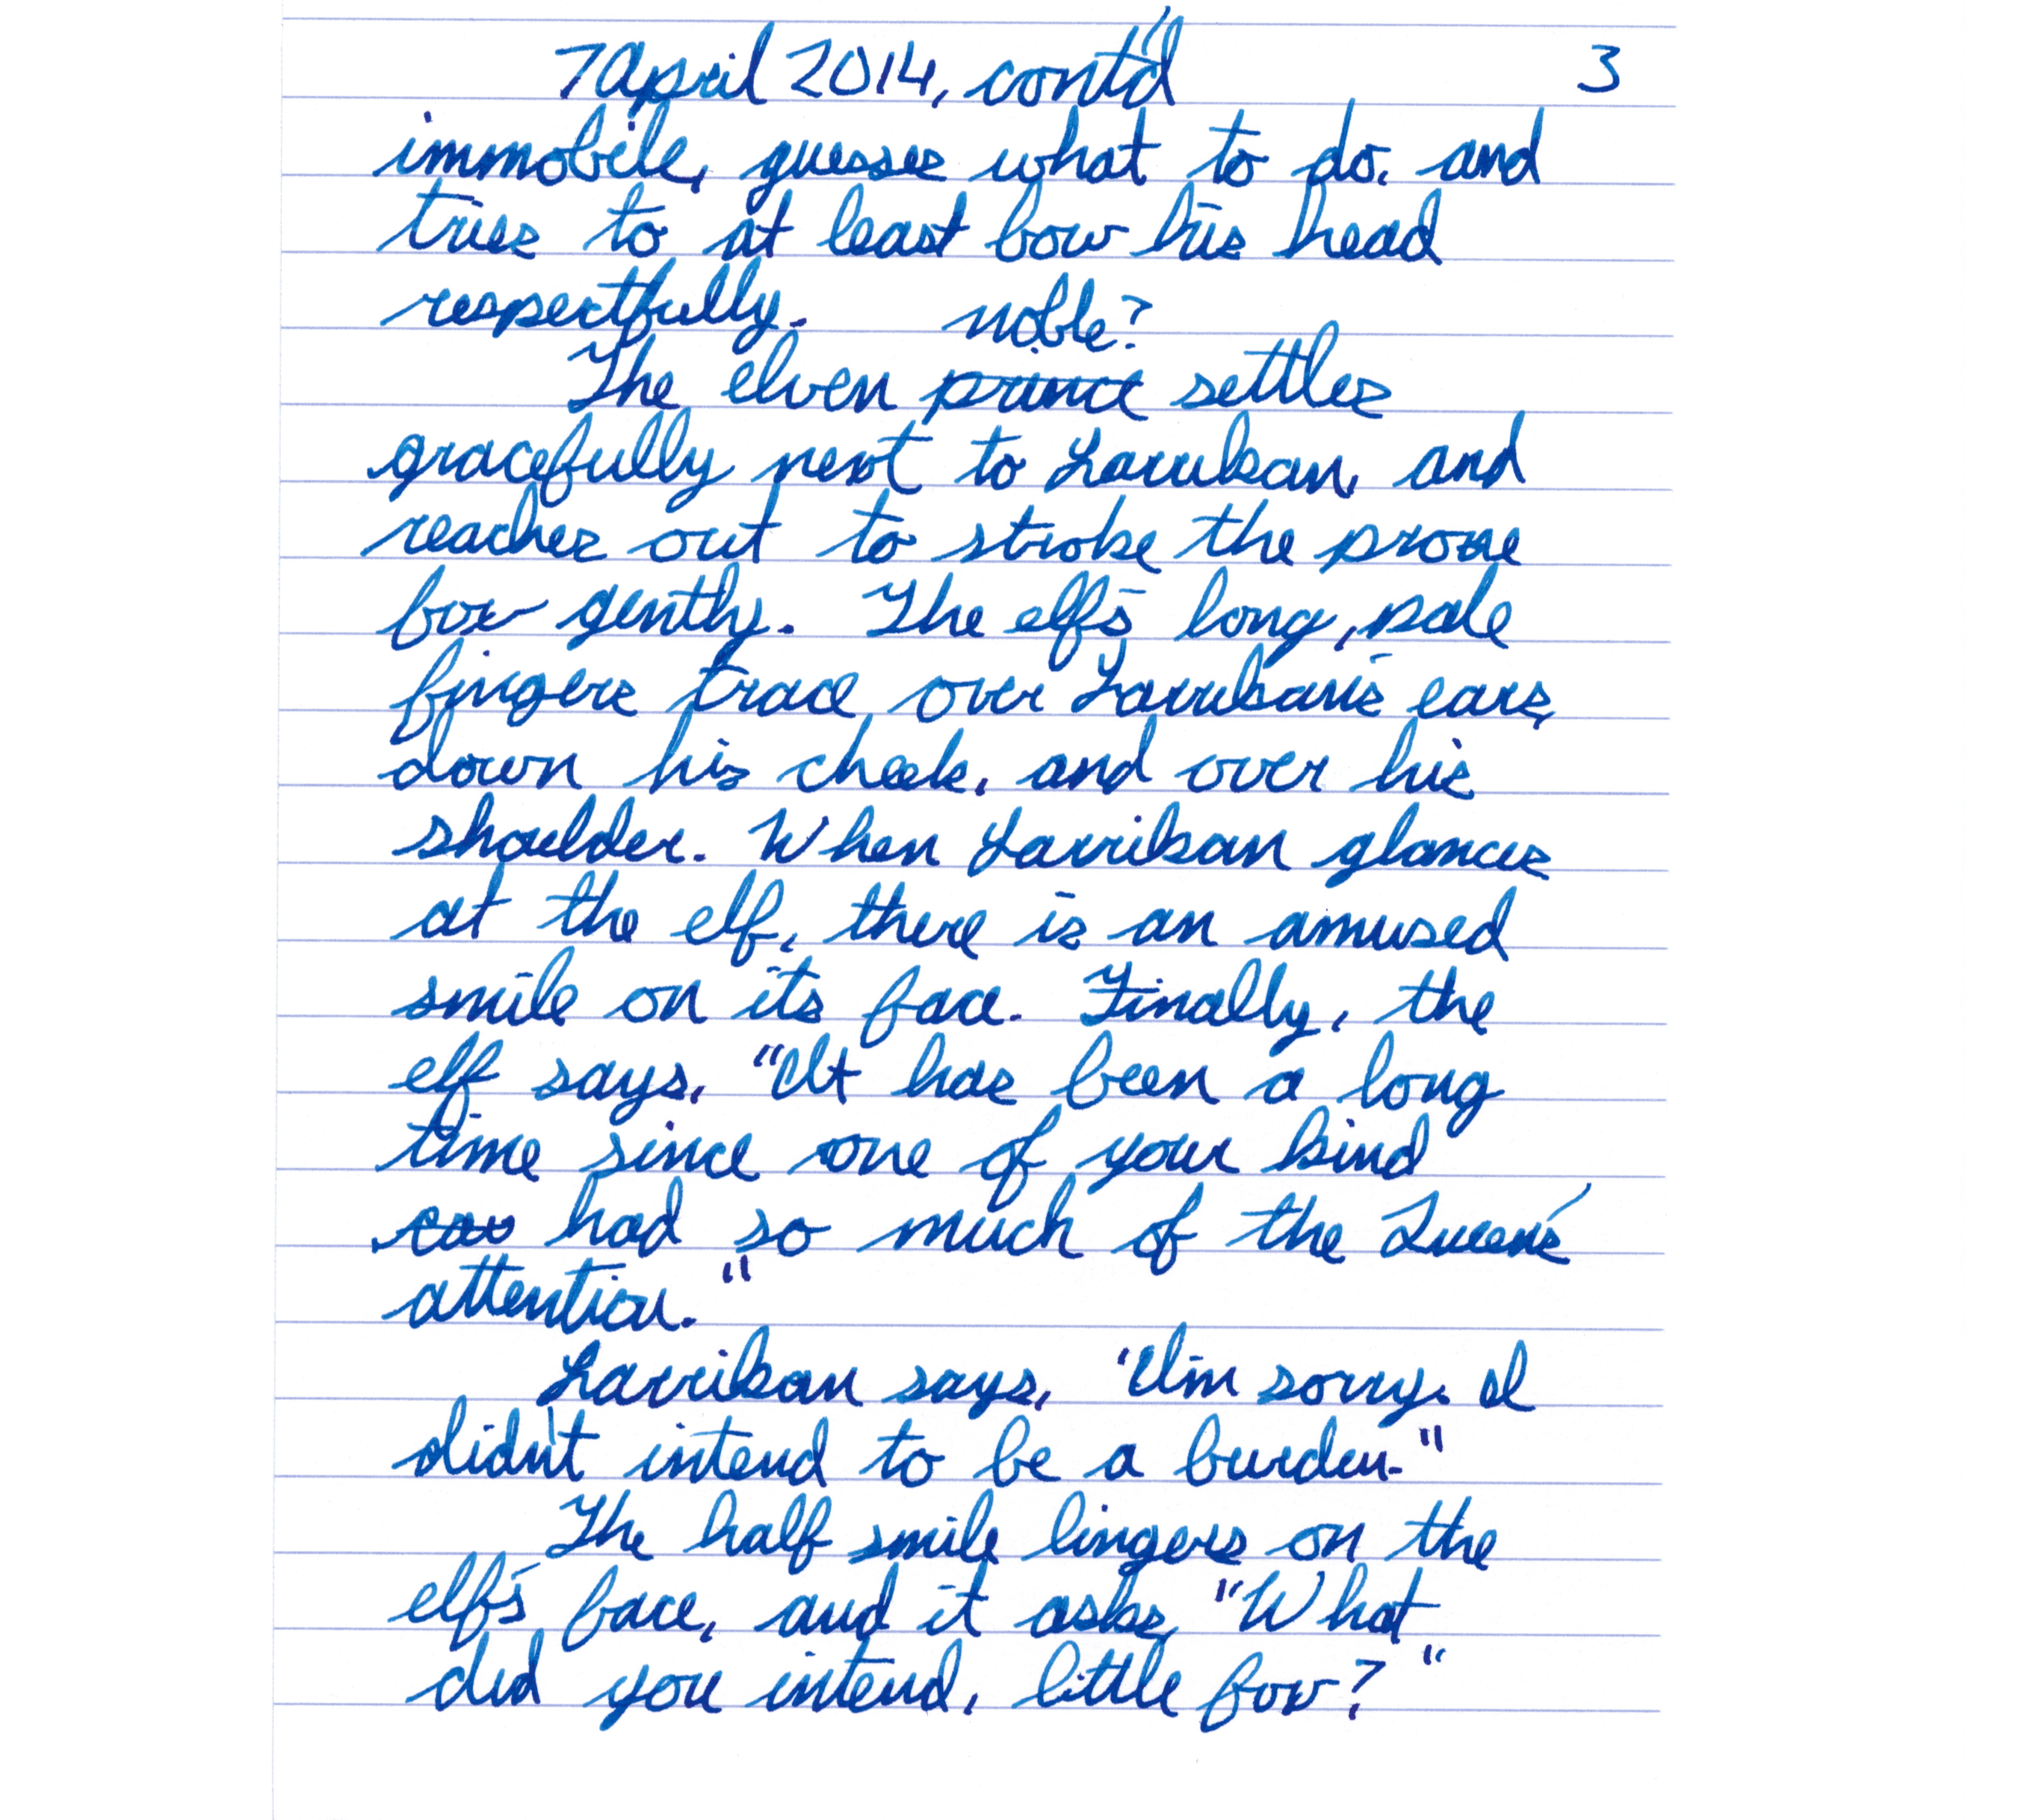 7 April 2014, cont'd 3
immobile, guesses what to do, and
tries to at least bow his head
respectfully. noble?
The elven prince settles
gracefully next to Larrikan, and
reaches out to stroke the prone
fox gently. The elf's long, pale
fingers trace over Larrikan's ears,
down his cheek, and over his
shoulder. When Larrikan glances
at the elf, there is an amused
smile on its face. Finally, the
elf says, "It has been a long
time since one of your kind
had so much of the Queen's
attention."
Larrikan says, "I'm sorry. I
didn't intend to be a burden."
The half smile lingers on the
elf's face, and it asks, "What
did you intend, little fox?"